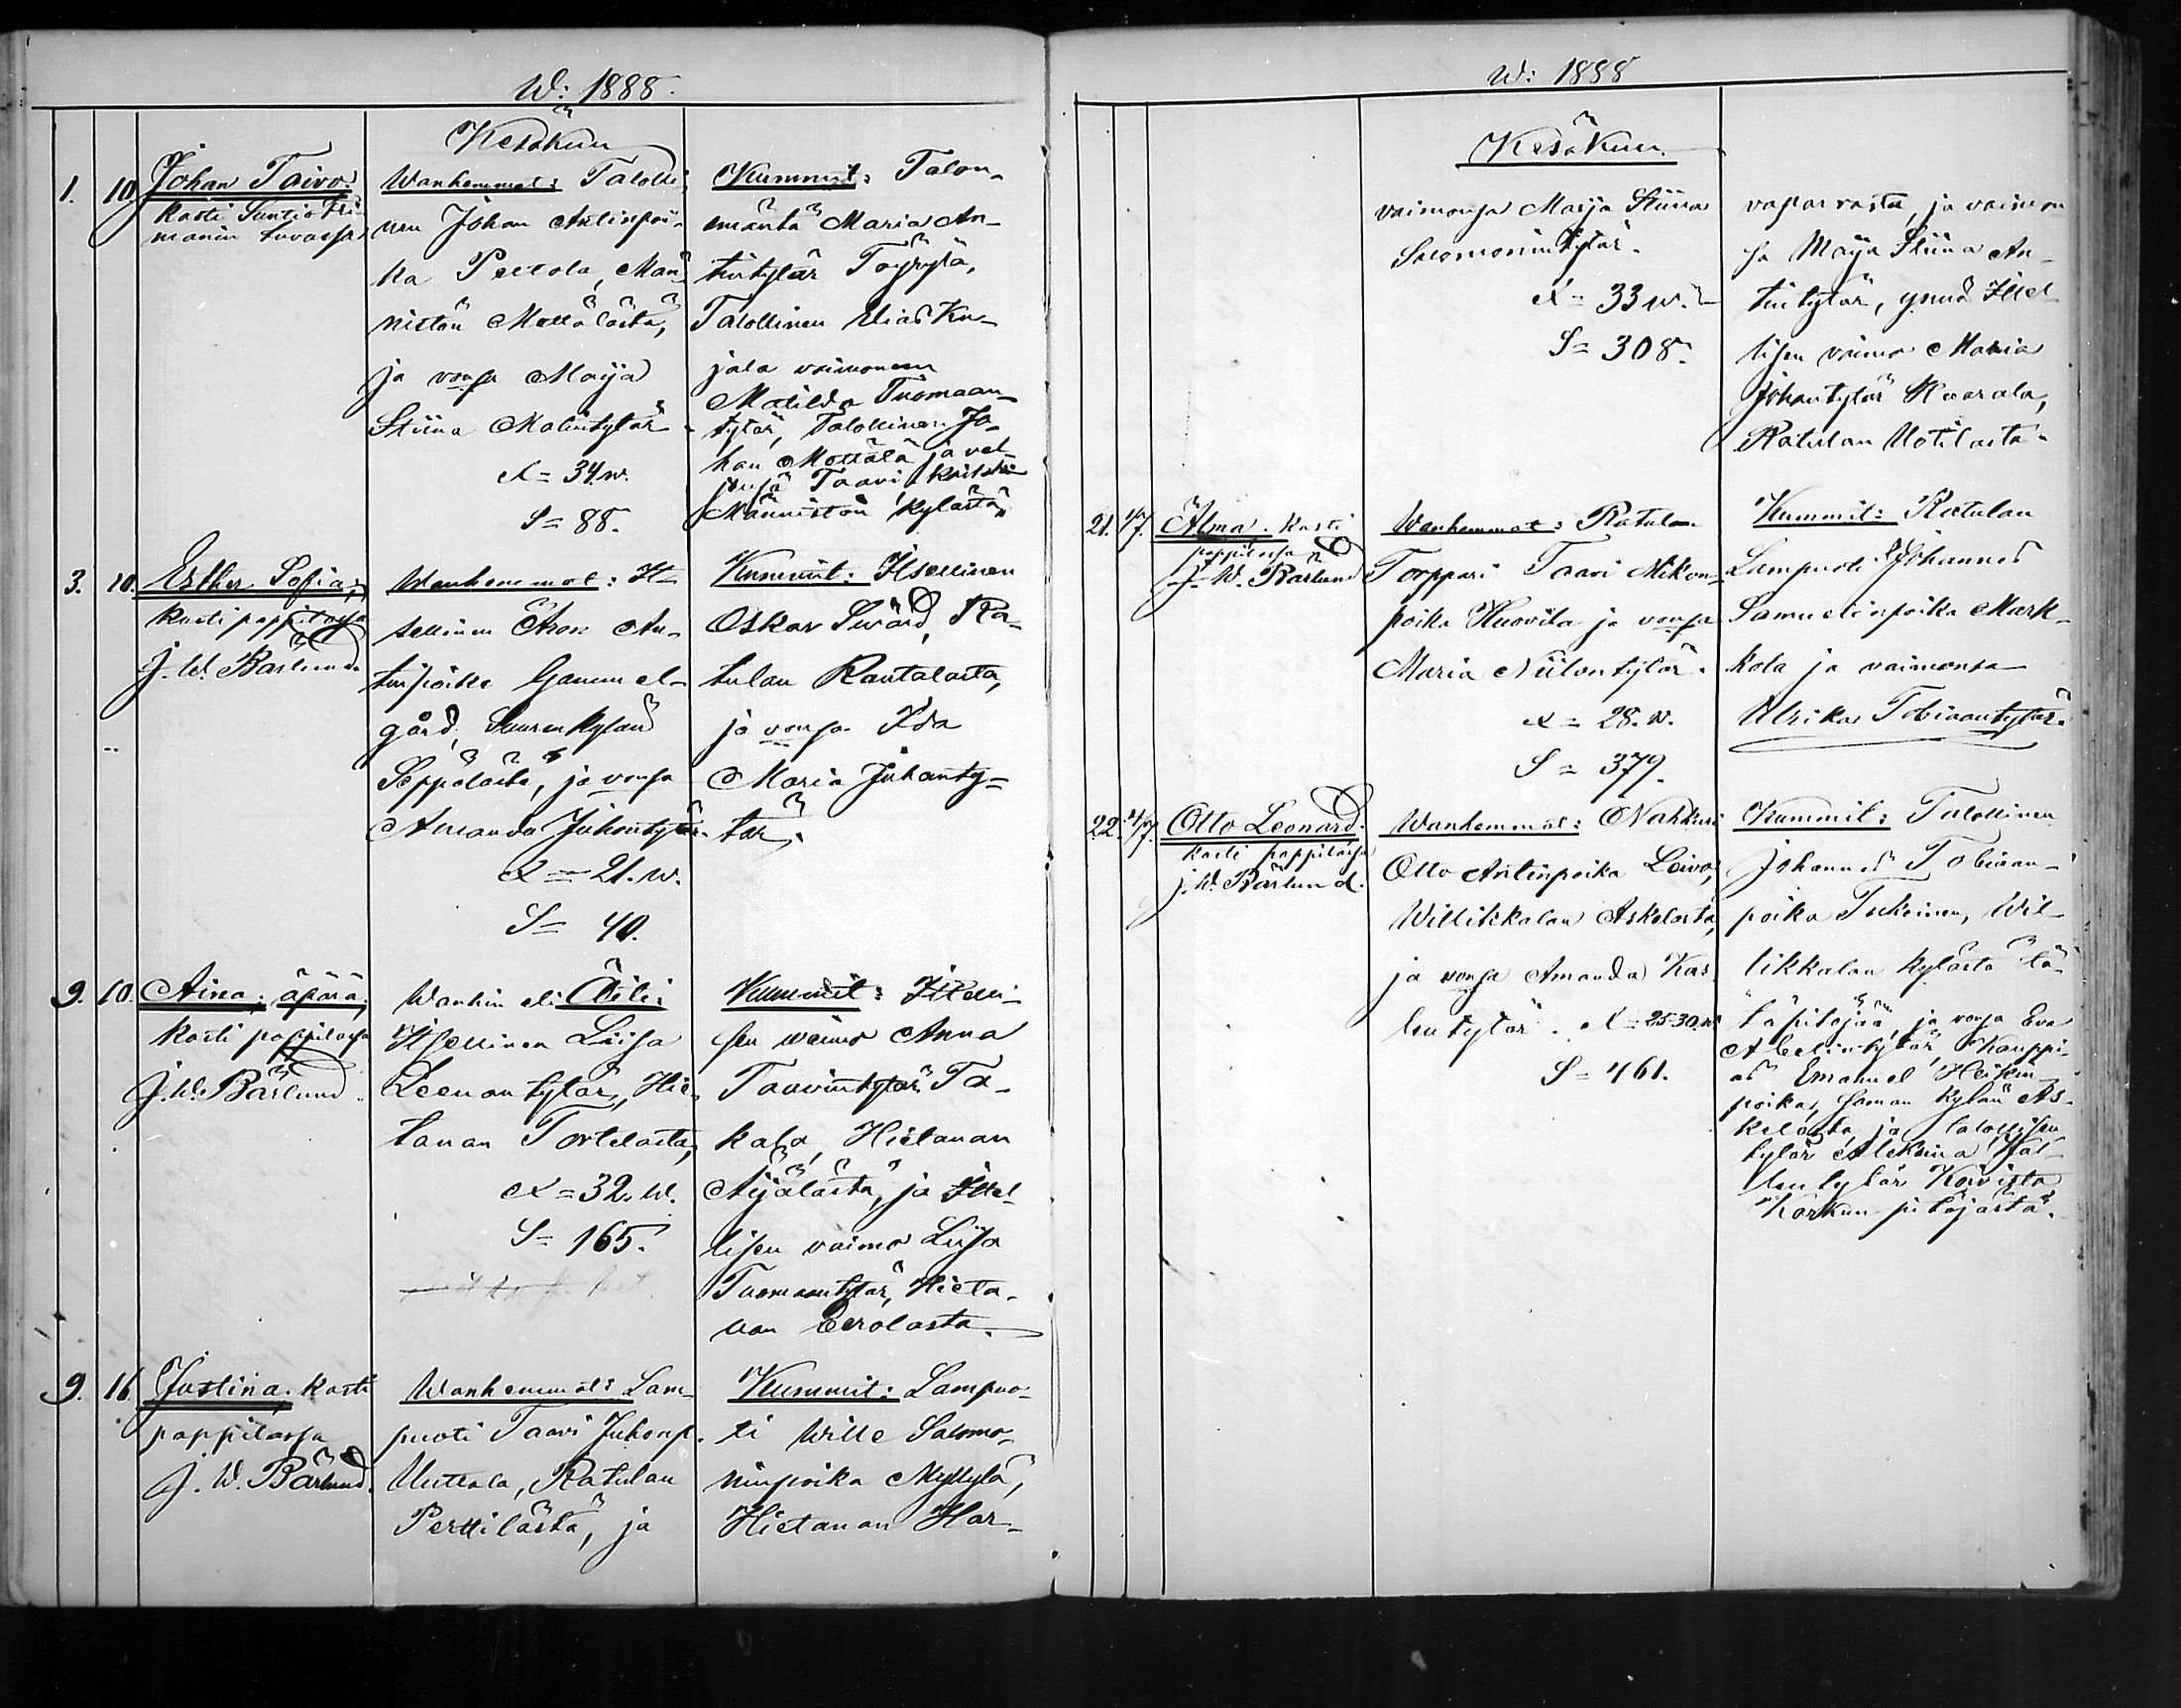 W: 1888.
Kesäkuu
1. 10. Johan Taivo.
kasti Suntio
manin tuvassa
Wanhemmat: Talolli-
nen Johan Antinpoi-
ka Pertola, Män-
nistön Mattälästä,
ja vonsa Maija
Stiina Matintytär
Ä = 34. w.
S = 88.
Kummit: Talon-
emäntä Maria An-
tintytär Töyrylä,
Talollinen Elias Ku-
jala vaimoneen
Matilda Tuomaan-
tytär, Talollinen Jo-
han Mattälä ja vel-
jensä Taavi
Männistön kylästä.
3. 10. Esther Sofia;
kasti pappilassa
J. W. Bärlund.
Wanhemmat: It-
sellinen Aron An-
tinpoika Gammel-
gård, Suurenkylän
Seppälästä, ja vonsa
Amanda Juhontytär.
Ä = 21. w.
S = 40.
Kummit: Itsellinen
Oskar Svärd, Ra-
tulan Rantalasta,
ja vonsa Ida
Maria Juhanty-
tär.
9. 10. Aina; äpärä;
kasti pappilassa
J. W. Bärlund.
Wanhin eli Äiti:
Itsellinen Liisa
Leenantytär, Hie-
tanan Tortelasta,
Ä = 32. w.
S = 165.
Kummit: Itselli-
sen waimo Anna
Taavintytär Ta-
kala, Hietanan
Äijälästä, ja Itsel-
lisen vaimo Liisa
Tuomaantytär, Hieta-
nan Eerolasta.
9. 16. Justina; kasti
pappilassa
J. W. Bärlund.
Wanhemmat: Lam-
puoti Taavi Juhonp.
Uuttala, Ratulan
Perttilästä, ja
Kummit: Lampuo-
ti Wille Salomo-
ninpoika Myllylä,
Hietanan Har-
W: 1888
Kesäkuu.
vaimonsa Maija Stiina
Salomonintytär.
Ä = 33 w.
S = 308.
vaparrasta, ja vaimon
sa Maija Stiina An-
tintytär, ynnä Itsel-
lisen vaimo Maria
Johantytär Kaarala,
Ratulan Uotilasta.
21. 1/7. Alma. kasti
pappilassa
J. W. Bärlund
Wanhemmat: Ratulan
Torppari Taavi Mikon-
poika Huovila ja vonsa
Maria Niilontytär.
Ä = 28. w.
S = 379.
Kummit: Ratulan
Lampuoti Johannes
Samuelinpoika Mark-
kola ja vaimonsa
Ulrika Tobiaantytär.
22. 4/7. Otto Leonard.
kasti pappilassa
J. W. Bärlund.
Wanhemmat: Nahkuri
Otto Antinpoika Leivo,
Willikkalan Askolasta,
ja vonsa Amanda Kas
lentytär. Ä = 25-30. w
S = 461.
Kummit: Talollinen
Johannes Tobiaan-
poika Tukeinen, Wil-
likkalan kylästä tä-
täpitäjää, ja vonsa Eva
Abelintytär Kauppi-
as Emanuel Heikin
poika, saman kylän As-
kolasta ja talollisen
tytär Aleksina Kal
lentytär Koivista
Karkun pitäjästä.